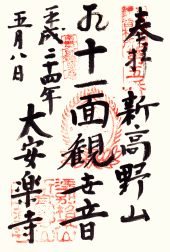 奉拝
新高野山
十一面観世音
大安楽寺
平成二十四年
五月八日